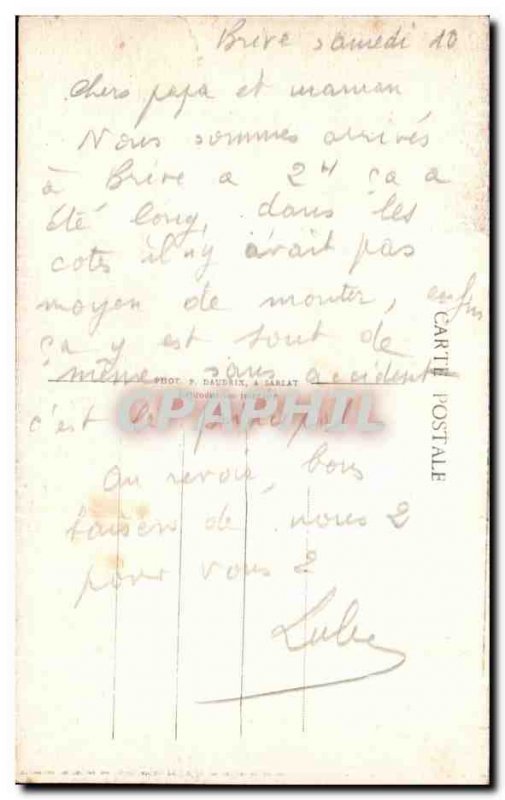 Brive samedi 10
Chers papa et maman
Nous sommes arrivés
à Brive a 2H ça a
été long, dans les
cotes il n'y avait pas
moyen de monter, enfin
ça y est tout de
même sans accident
PHOT. P. DAUDRIX, A SARLAT
c'est le principal
CPAPHIL
Au revoir, bons
baisers de nous 2
pour vous 2
CARTE POSTALE